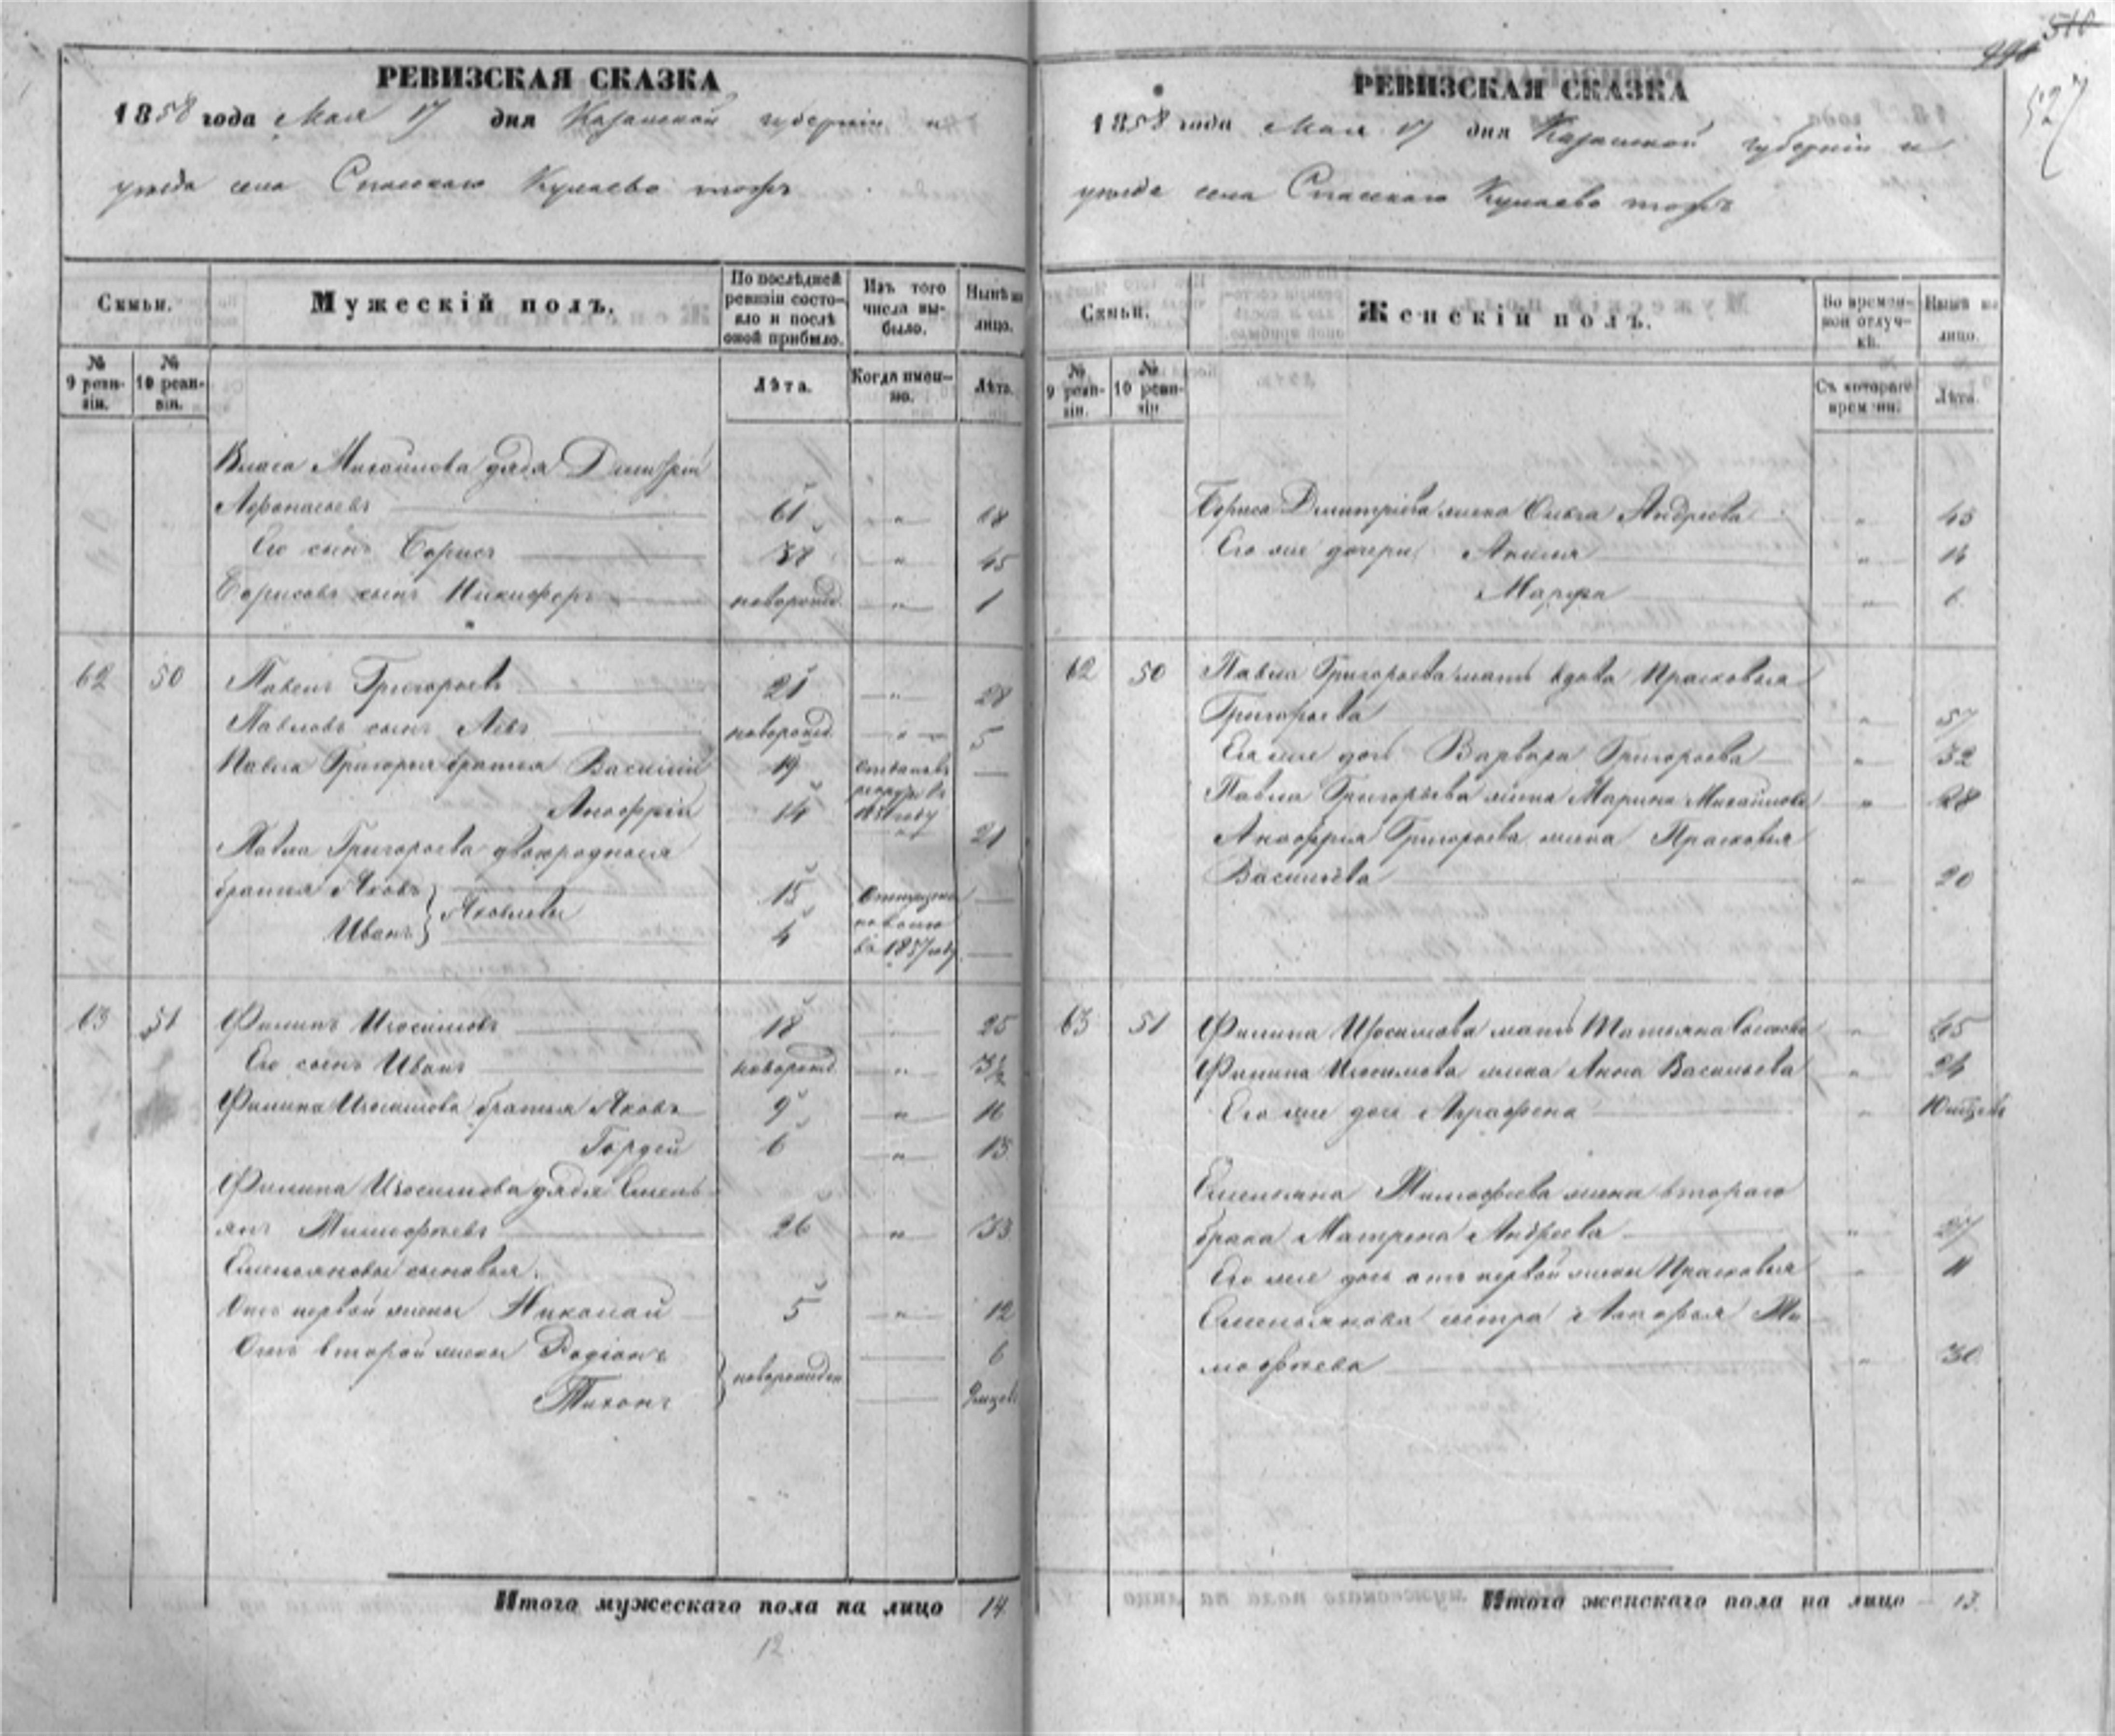 РЕВИЗСКАЯ СКАЗКА
1858 года Мая 17 дня Казанской губернии и
уезда села Спасскаго Кулаево тожъ
Семьи.
Мужескій полъ.
По послѣдней
ревизіи состо-
яло и послѣ
оной прибыло.
Изъ того
числа вы-
было.
Нынѣ на
лицо.
№
9 реви-
зіи.
№
10 реви-
зіи.
Лѣта.
Когда имен-
но.
Лѣта.
Власа Михайлова дядя Дмитрій
Афонасьевъ 61 " 68
Его сынъ Борисъ 38 " 45
Борисовъ сынъ Никифоръ новорожд. " 1
62 50 Павелъ Григорьевъ 21 " 28
Павловъ сынъ Левъ новорожд. " 5
Павла Григорья братья Василій 19 Отданъ въ
рекруты въ
году
Аноффрій 14 " 21
Павла Григорьева двоюродныя
братья Яковъ 15 Отпущены
Яковлевы
на волю
Иванъ 4
въ 1857 году
63 51 Филипъ Изосимовъ 18 " 25
Его сынъ Иванъ новорожд. " 3½
Филипа Изосимова братья Яковъ 9 " 16
Гордей 6 " 13
Филипа Изосимова дядя Емель-
янъ Тимофеевъ 26 " 33
Емельяновы сыновья
Отъ первой жены Николай 5 " 12
Отъ второй жены Родіонъ 6
новорожден
Тихонъ
Итого мужескаго пола на лицо 14
12
510
527
РЕВИЗСКАЯ СКАЗКА
1858 года Мая 17 дня Казанской губерніи и
уезда села Спасскаго Кулаево тожъ
Семьи.
Женскій полъ.
Во времен-
ной отлуч-
кѣ.
Нынѣ на
лицо.
№
9 реви-
зіи.
№
10 реви-
зіи
Съ котораго
времени.
Лѣта.
Бориса Дмитріева жена Ольга Андреева " 43
Его же дочери Акилина
Марфа " 6
62 50 Павла Григорьева мать вдова Прасковья
Григорьева " 57
Ея же дочь Варвара Григорьева " 32
Павла Григорьева жена Марина Михайлова " 28
Аноффрія Григорьева жена Прасковья
Васильева " 20
63 51 Филипа Изосимова мать Татьяна " 45
Филипа Изосимова жена Анна Васильева " 24
Его же дочь Аграфена " 10
Емельяна Тимофеева жена втораго
брака Матрена Андреева " 27
Его же дочь отъ первой жены Прасковья " 11
Емельянова сестра Ти-
мофеева " 30
Итого женскаго пола на лицо 13.